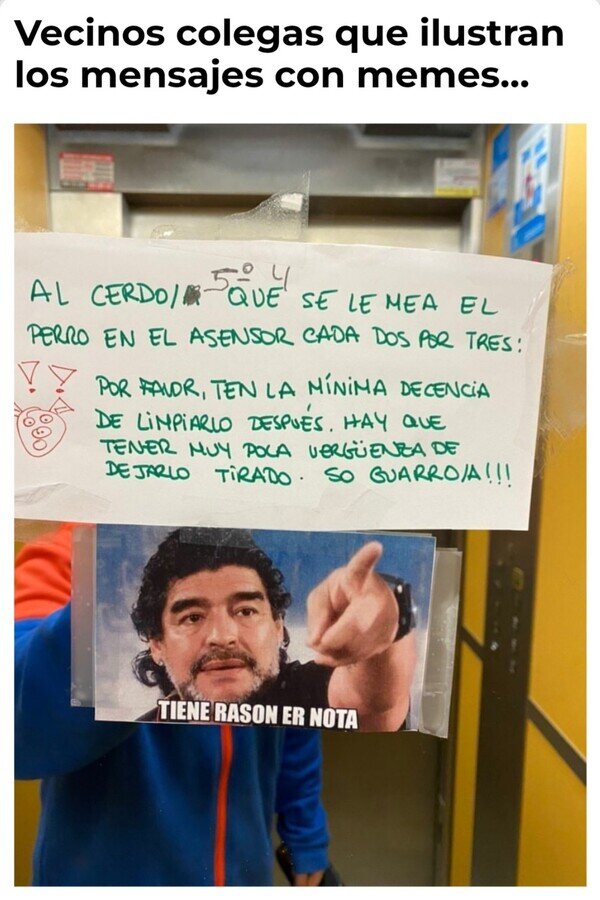 Vecinos colegas que ilustran
los mensajes con memes...
AL CERDO/A 5º 4 QUE SE LE MEA EL
PERRO EN EL ASENSOR CADA DOS POR TRES:
POR FAVOR, TEN LA MÍNIMA DECENCIA
DE LIMPIARLO DESPUÉS. HAY QUE
TENER MUY POCA VERGÜENZA DE
DEJARLO TIRADO. SO GUARRO/A!!!
TIENE RASON ER NOTA